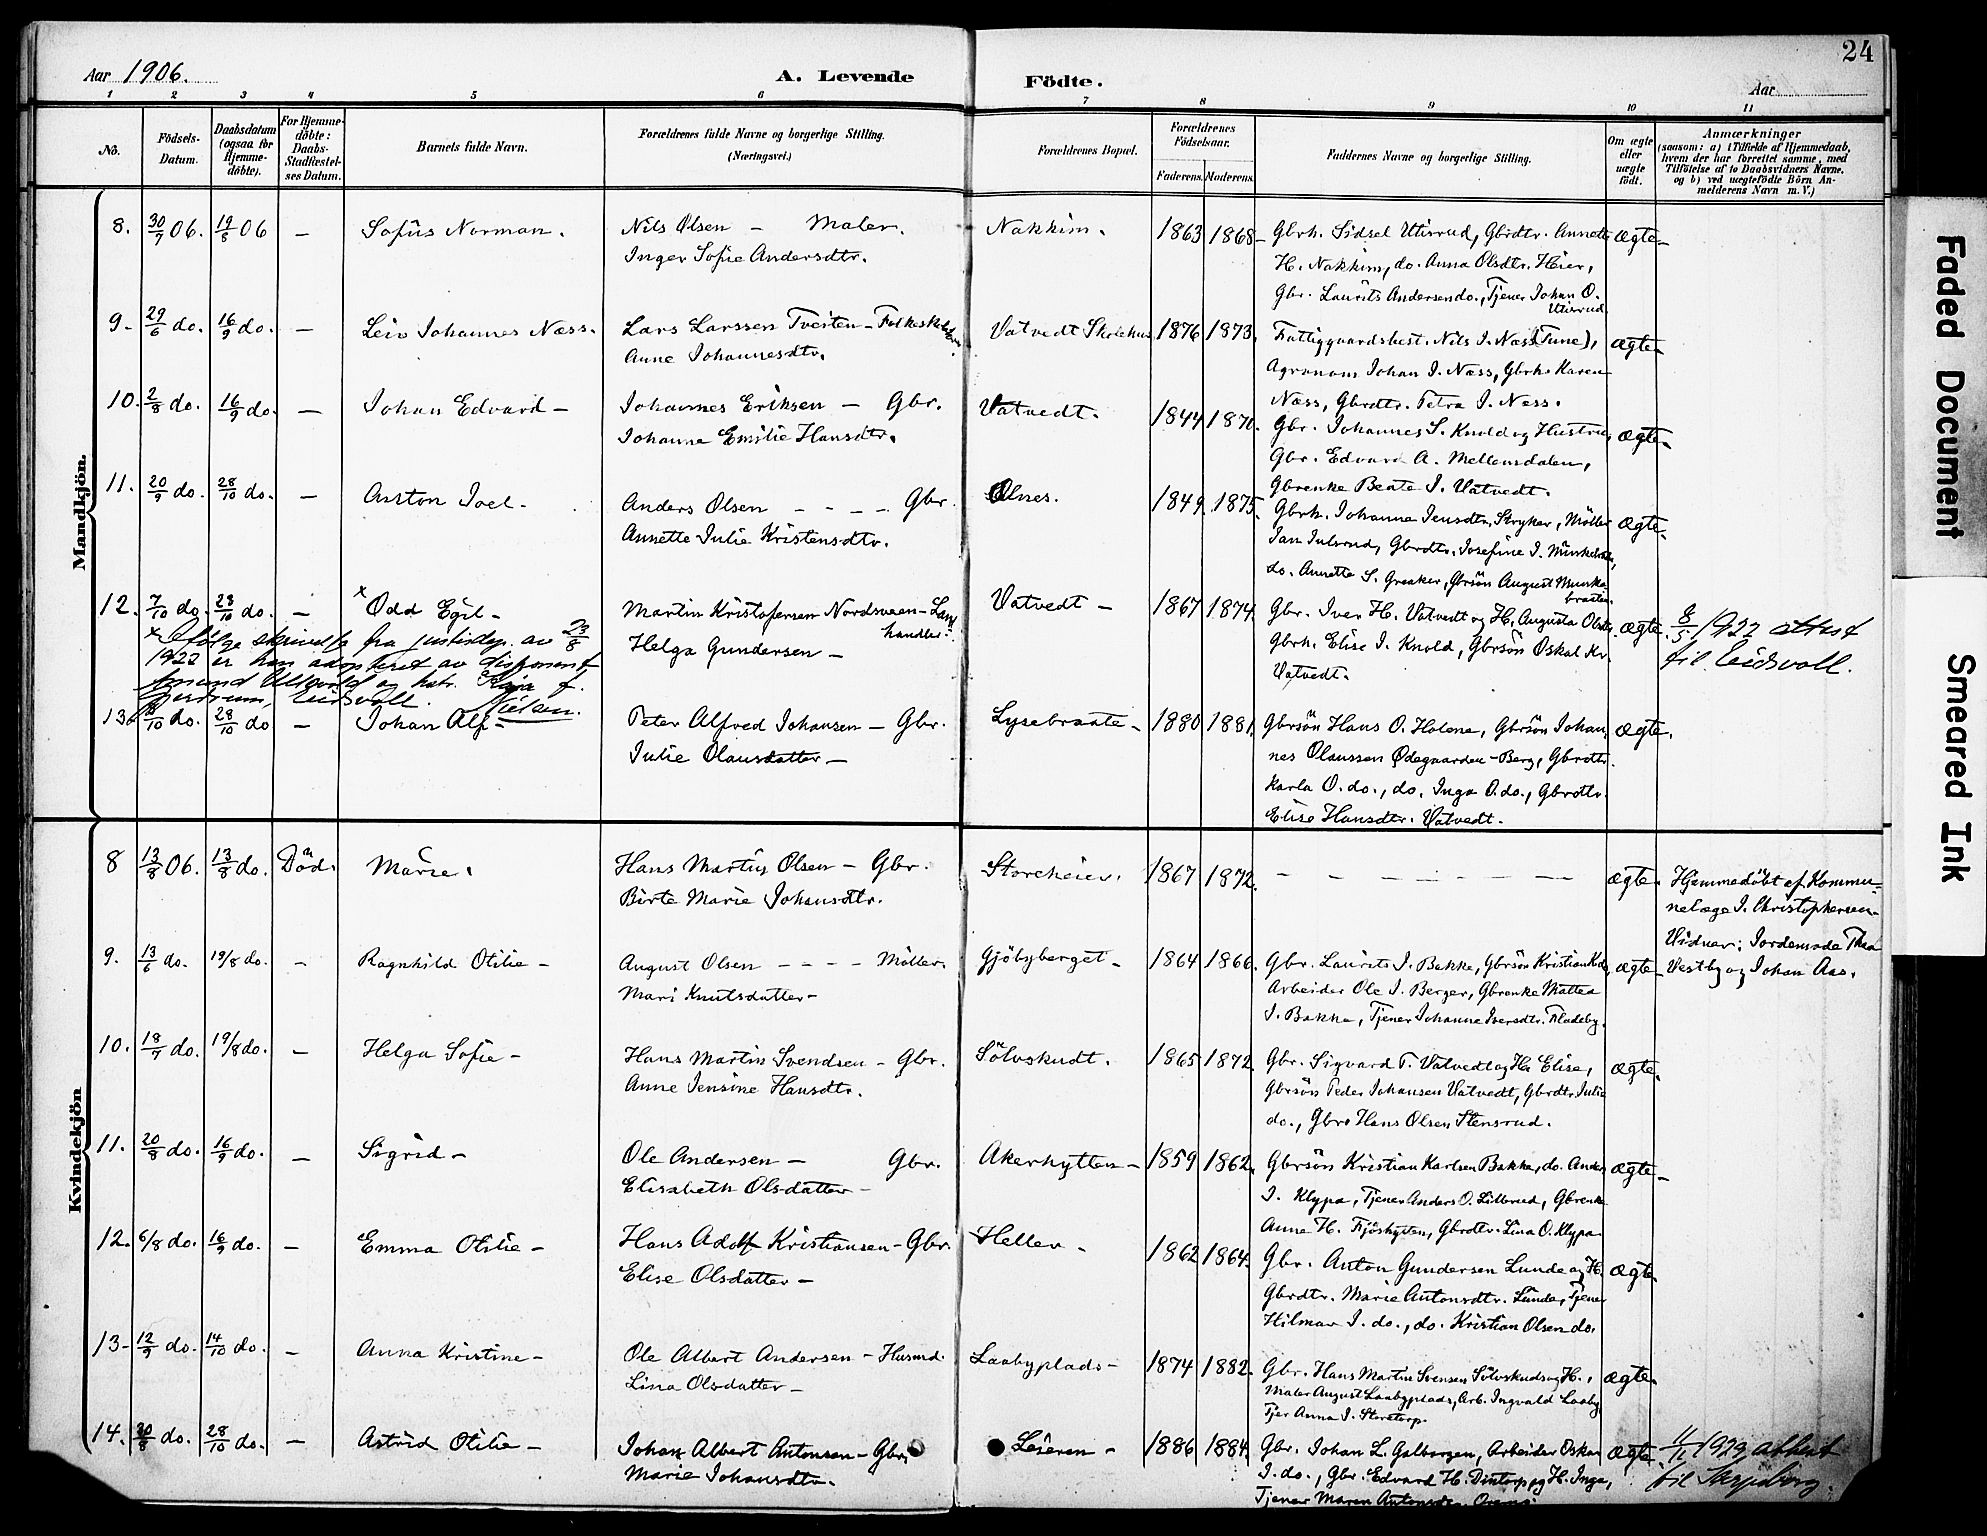 24
Aar 1906.
A. Levende Födte.
Aar
1 2 3 4 5 6 7 8 9 10 11
No.
Födsels-Datum.
Daabsdatum (ogsaa for Hjemmedöbte).
For Hjemmedöbte: Daabs-Stadfæstelses Datum.
Barnets fulde Navn.
Forældrenes fulde Navne og borgerlige Stilling.
(Næringsvei.)
Forældrenes Bopæl.
Forældrenes Födselsaar.
Faderens. Moderens.
Faddernes Navne og borgerlige Stilling.
Om ægte eller uægte födt.
Anmærkninger
(saasom: a) i Tilfælde af Hjemmedaab,
hvem der har forrettet samme, med
Tilföielse af to Daabsvidners Navne.
og b) ved uægtefödte Börn An-
melderens Navn m. V.)
Mandkjön.
8. 30/7 06. 19/8 06 — Sofus Norman. Nils Olsen — Maler. Nakkim. 1863 1868 Gbrh. Sidsel Utisrud, Gbrdtr. Annette ægte
Inger Sofie Andersdtr. H. Nakkim, do. Anna Olsdtr. Heier,
Gbr. Laurits Andersen do., Tjener Johan O.
Utisrud.
9. 29/6 do. 16/9 do. — Leiv Johannes Næss. Lars Larssen Tveiten — Vatvedt Skolehus 1876 1873. Fattiggaardsbest. Nils I. Næss (Tune), ægte
Anne Johannesdtr. Agronom Johan I. Næss, Gbrh. Karen
Næss, Gbrdtr. Petra I. Næss.
10. 2/8 do. 16/9 do. — Johan Edvard — Johannes Eriksen — Gbr. Vatvedt. 1844 1870. Gbr. Johannes S. Knold og Hustru, ægte
Johanne Emilie Hansdtr. Gbr. Edvard A. Mellemsdalen,
Gbrenke Beate I. Vatvedt.
11. 20/9 do. 28/10 do. — Anton Joel. Anders Olsen — Gbr. Olnes. 1849 1875. Gbrh. Johanne Jensdtr. Stryker, Möller ægte.
Annette Julie Kristensdtr. Jan Julsrud, Gbrdtr. Josefine I.
do. Annette S. Greaker, Gbrsön August
12. 7/10 do. 28/10 do. — × Odd Egil — Martin Kristofersen Nordsveen — Land Vatvedt — 1867 1874. Gbr. Iver H. Vatvedt og H. Augusta Olsdtr. ægte. 8/5 1922 attest
handler. Helga Gundersen — Gbrh. Elise I. Knold, Gbrsön Oskar Kr. til Eidsvoll.
Vatvedt.
× Ifölge skrivelse fra justisdep. av 23/8
1922 er han adopteret av disponent
Amund Ullevold og hstr. Kaja f.
Gjerdrum, Eidsvoll. Nielsen.
13. /10 do. 28/10 do — Johan Alf — Peter Alfred Johansen — Gbr. Lysebraate — 1880 1881. Gbrsön Hans O. Holene, Gbrsön Johan- ægte.
Julie Olausdatter — nes Olaussen Ødegaarden-Berg, Gbrdtr.
Karla O. do., do. Inga O. do., Gbrdtr.
Elise Hansdtr. Vatvedt.
Kvindekjön
8 13/8 06. 13/8 do. Död. Marie. Hans Martin Olsen — Gbr. Storeheier. 1867 1872. — — — ægte. Hjemmedöbt af Kommu-
Birte Marie Johansdtr. nelæge I. Christophersen.
Vidner: Jordemode Thea
Vestby og Johan Aas.
9. 13/6 do. 19/8 do. — Ragnhild Otilie — August Olsen — — — Möller. Gjöbyberget — 1864 1866. Gbr. Laurits I. Bakke, Gbrsön Kristian K. do, ægte
Mari Knutsdatter — Arbeider Ole I. Berger, Gbrenke Mattea
I. Bakke, Tjener Johanne Iversdtr. Fladeby.
10. 18/7 do. 19/8 do. — Helga Sofie — Hans Martin Svendsen — Gbr. Sölvskudt. 1865 1872. Gbr. Sigvard T. Vatvedt og H. Elise, ægte.
Anne Jensine Hansdtr. Gbrsön Peder Johansen Vatvedt, Gbrdtr. Julie
do., Gbr. Hans Olsen Stensrud.
11. 20/8 do. 16/9 do. — Sigrid — Ole Andersen — Gbr. Akerhytten — 1859 1862. Gbrsön Kristian Karlsen Bakke, do. Anders ægte
Elisabeth Olsdatter — I. Klypa, Tjener Anders O. Lillerud, Gbrenke
Anne H. Fjöshyten, Gbrdtr. Lina O. Klypa
12. 6/8 do. 16/9 do. — Emma Otilie — Hans Adolf Kristiansen — Gbr. Heller — 1862 1864. Gbr. Anton Gundersen Lunde og H. ægte
Elise Olsdatter — Gbrdtr. Marie Antonsdtr. Lunde, Tjener
Hilmar I. do., do. Kristian Olsen do.
13 — 12/9 do. 14/10 do. — Anna Kristine — Ole Albert Andersen — Husmd. Laabyplads — 1874 1882. Gbr. Hans Martin Svensen Sölvskudt og H., ægte.
Lina Olsdatter — Maler August Laabyplads, Arb. Ingvald Laaby
Tjer Anna I. Storetorp.
14. 30/8 do. 28/10 do. — Astrid Otilie — Johan Albert Antonsen — Gbr. Leieren — 1886 1884. Gbr. Johan L. Galborgen, Arbeider Oskar ægte 11/11 1929 attest
Marie Johansdtr. I. do., Gbr. Edvard H. Dintorp og H. Inga, til Skjeberg.
Tjener Maren Antonsdtr.
Faded Document
Smeared Ink